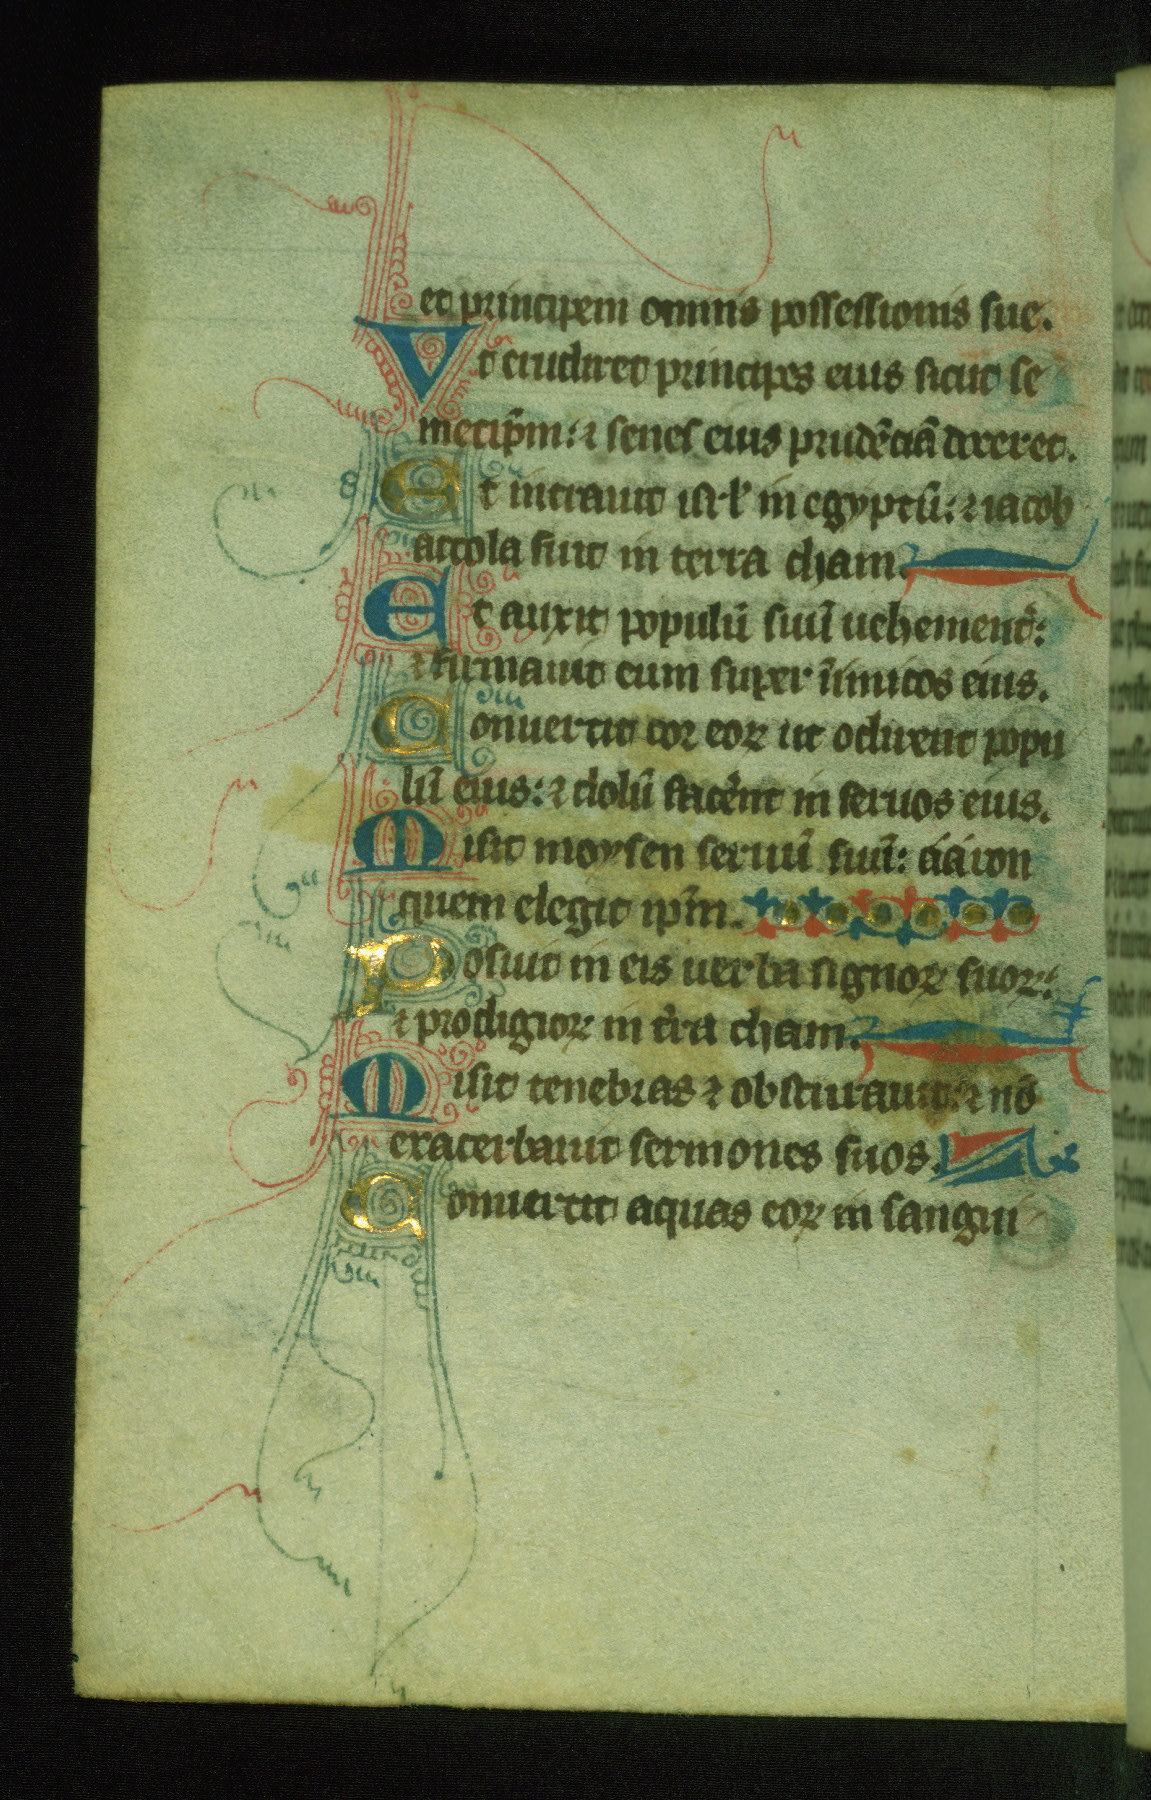 et principem omnis possessionis sue.
Vt erudiret principes eius sicut se
metip̄m: ⁊ senes eius prudē̄ciā doceret.
Et intrauit isr̄l in egyptū: ⁊ iacob
accola fuit in terra cham.
Et auxit populū suū uehement̄:
⁊ firmauit eum super īimicos eius.
Conuertit cor eoꝝ ut odirent popu
lū eius: ⁊ dolū facēnt in seruos eius.
Misit moysen seruū suū: aaron
quem elegit ip̄m.
Posuit in eis uerba signoꝝ suoꝝ:
⁊ prodigioꝝ in t̄ra cham.
Misit tenebras ⁊ obscurauit: ⁊ nō
exacerbauit sermones suos.
Conuertit aquas eoꝝ in sangui